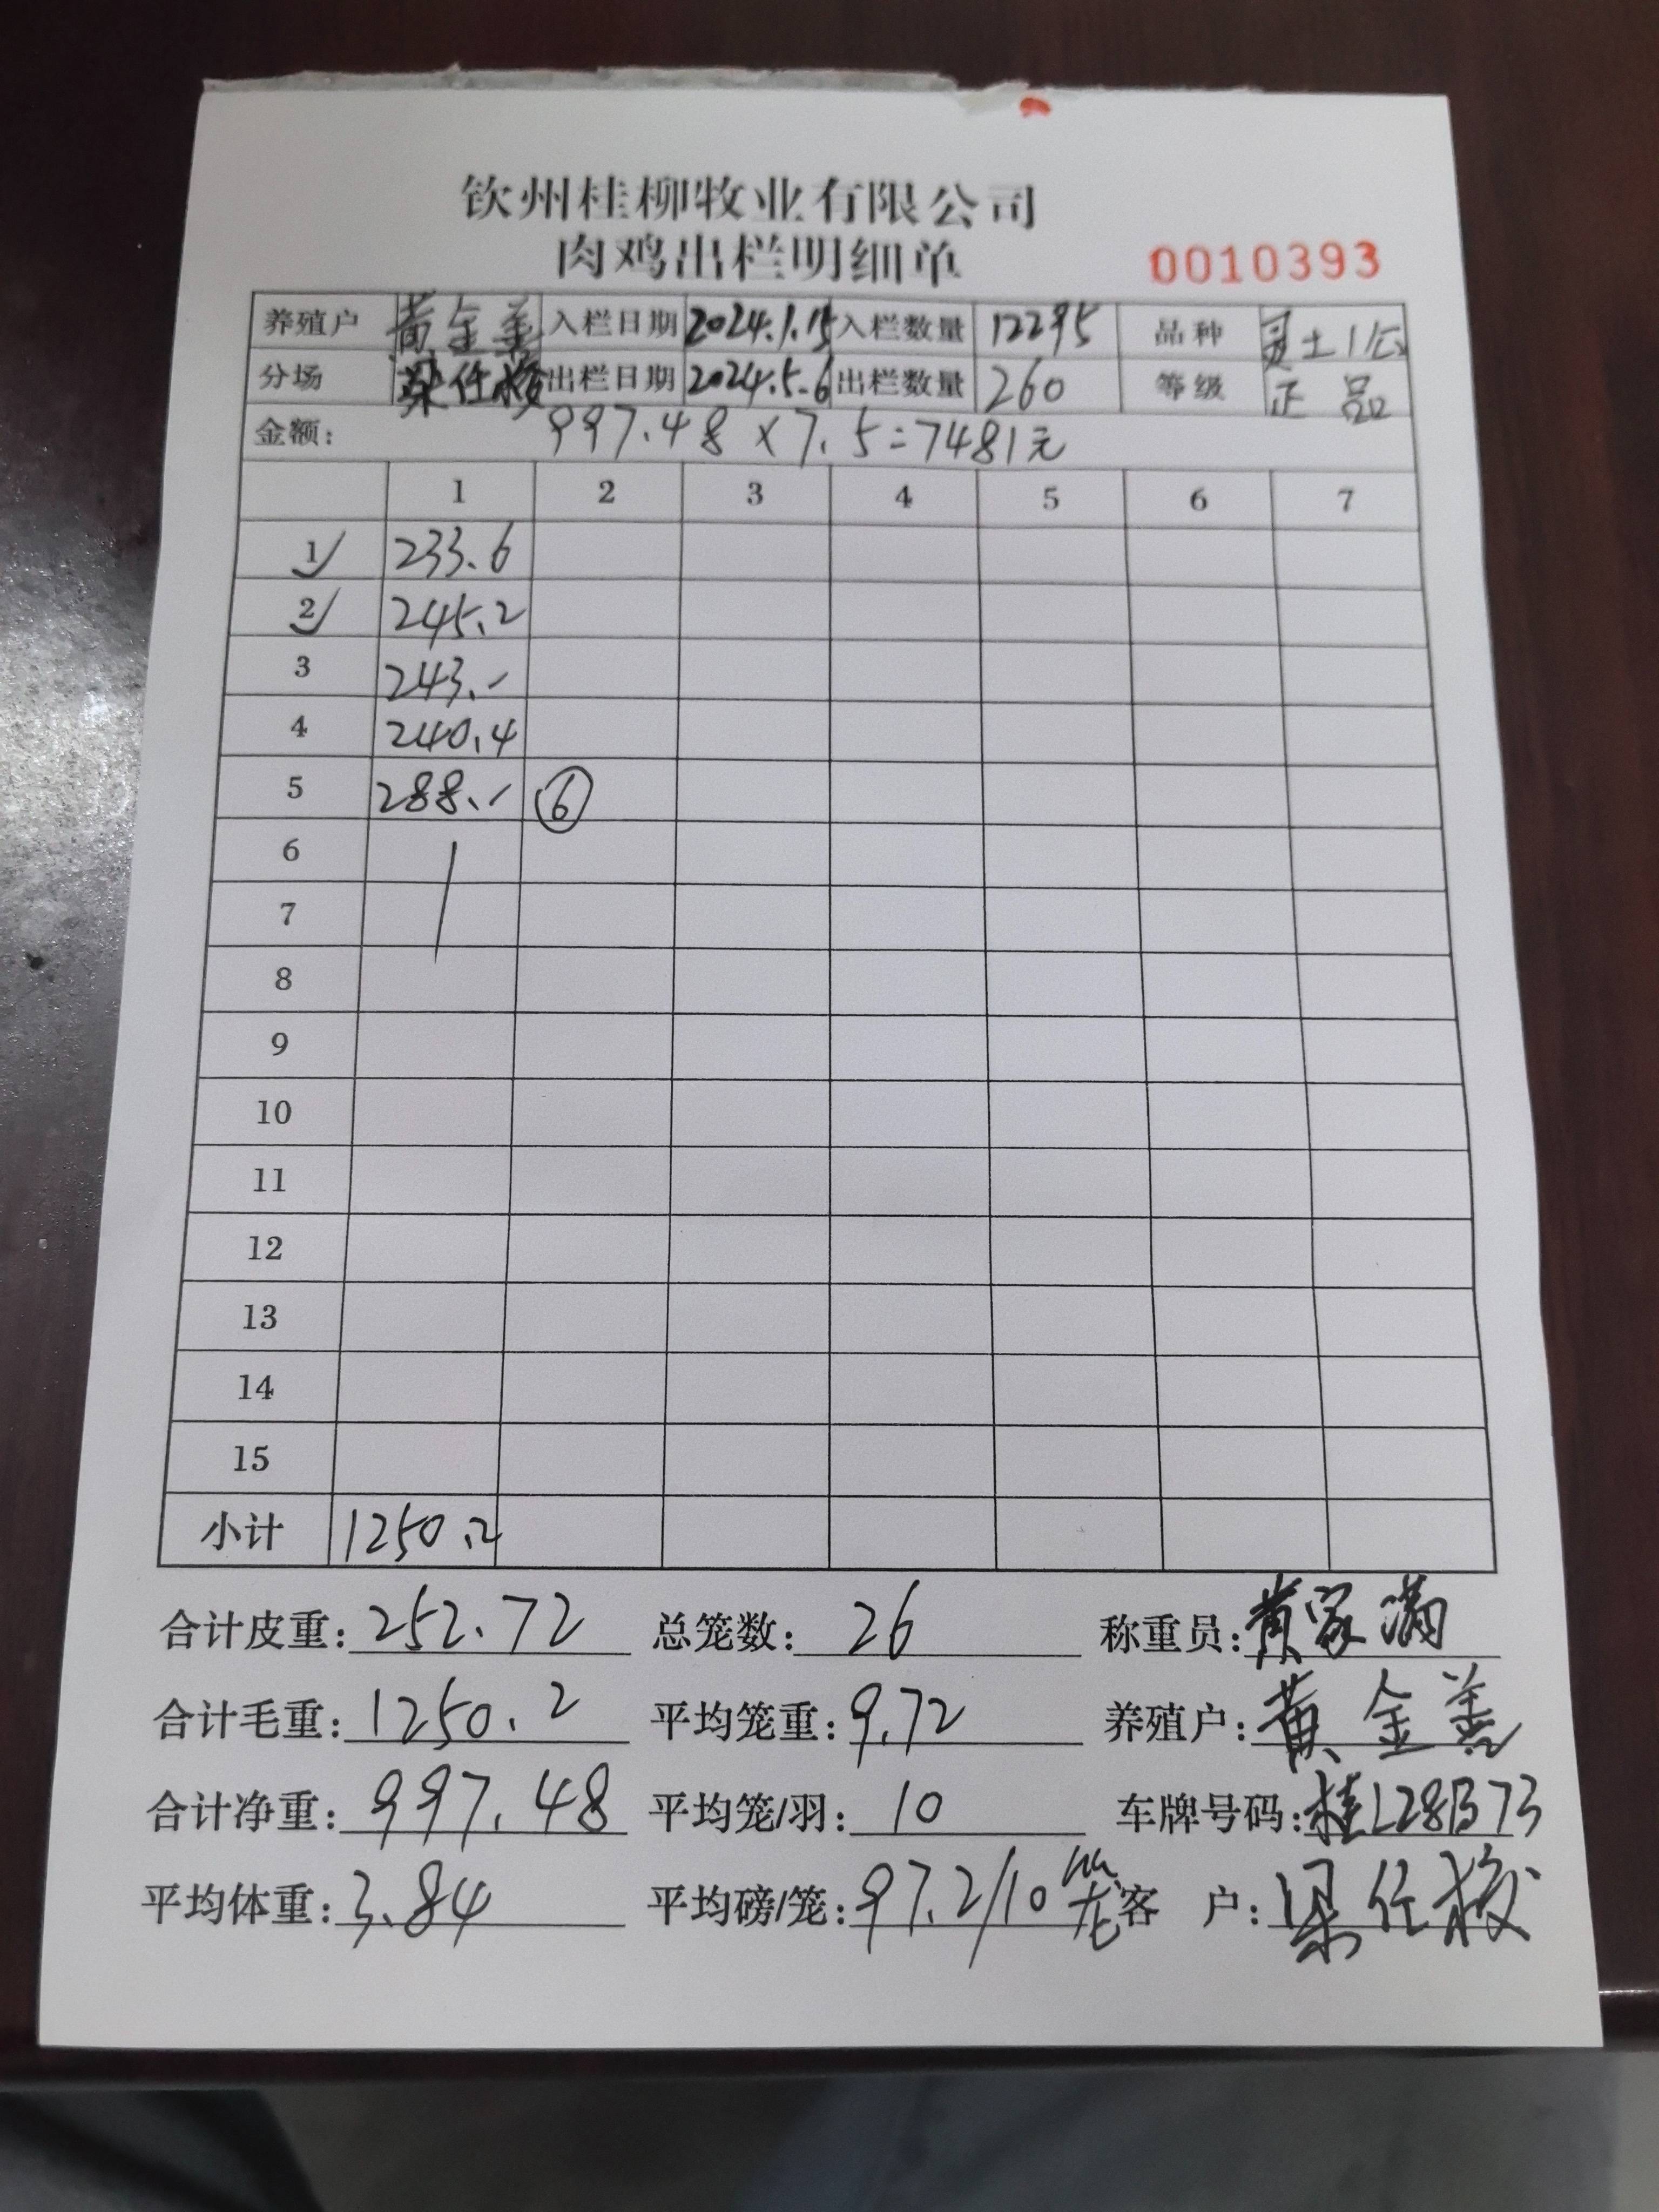 钦州桂柳牧业有限公司
肉鸡出栏明细单 0010393
养殖户 黄金善 入栏日期 2024.1.15 入栏数量 12295 品种 灵土1公
分场 梁仕校 出栏日期 2024.5.6 出栏数量 260 等级 正品
金额: 997.48×7.5=7481元
1 2 3 4 5 6 7
1 233.6
2 245.2
3 243.-
4 240.4
5 288.- ⑥
6
7
8
9
10
11
12
13
14
15
小计 1250.2
合计皮重: 252.72 总笼数: 26 称重员: 黄家满
合计毛重: 1250.2 平均笼重: 9.72 养殖户: 黄金善
合计净重: 997.48 平均笼/羽: 10 车牌号码: 桂L28B73
平均体重: 3.84 平均磅/笼: 97.2/10笼 客户: 梁仕校